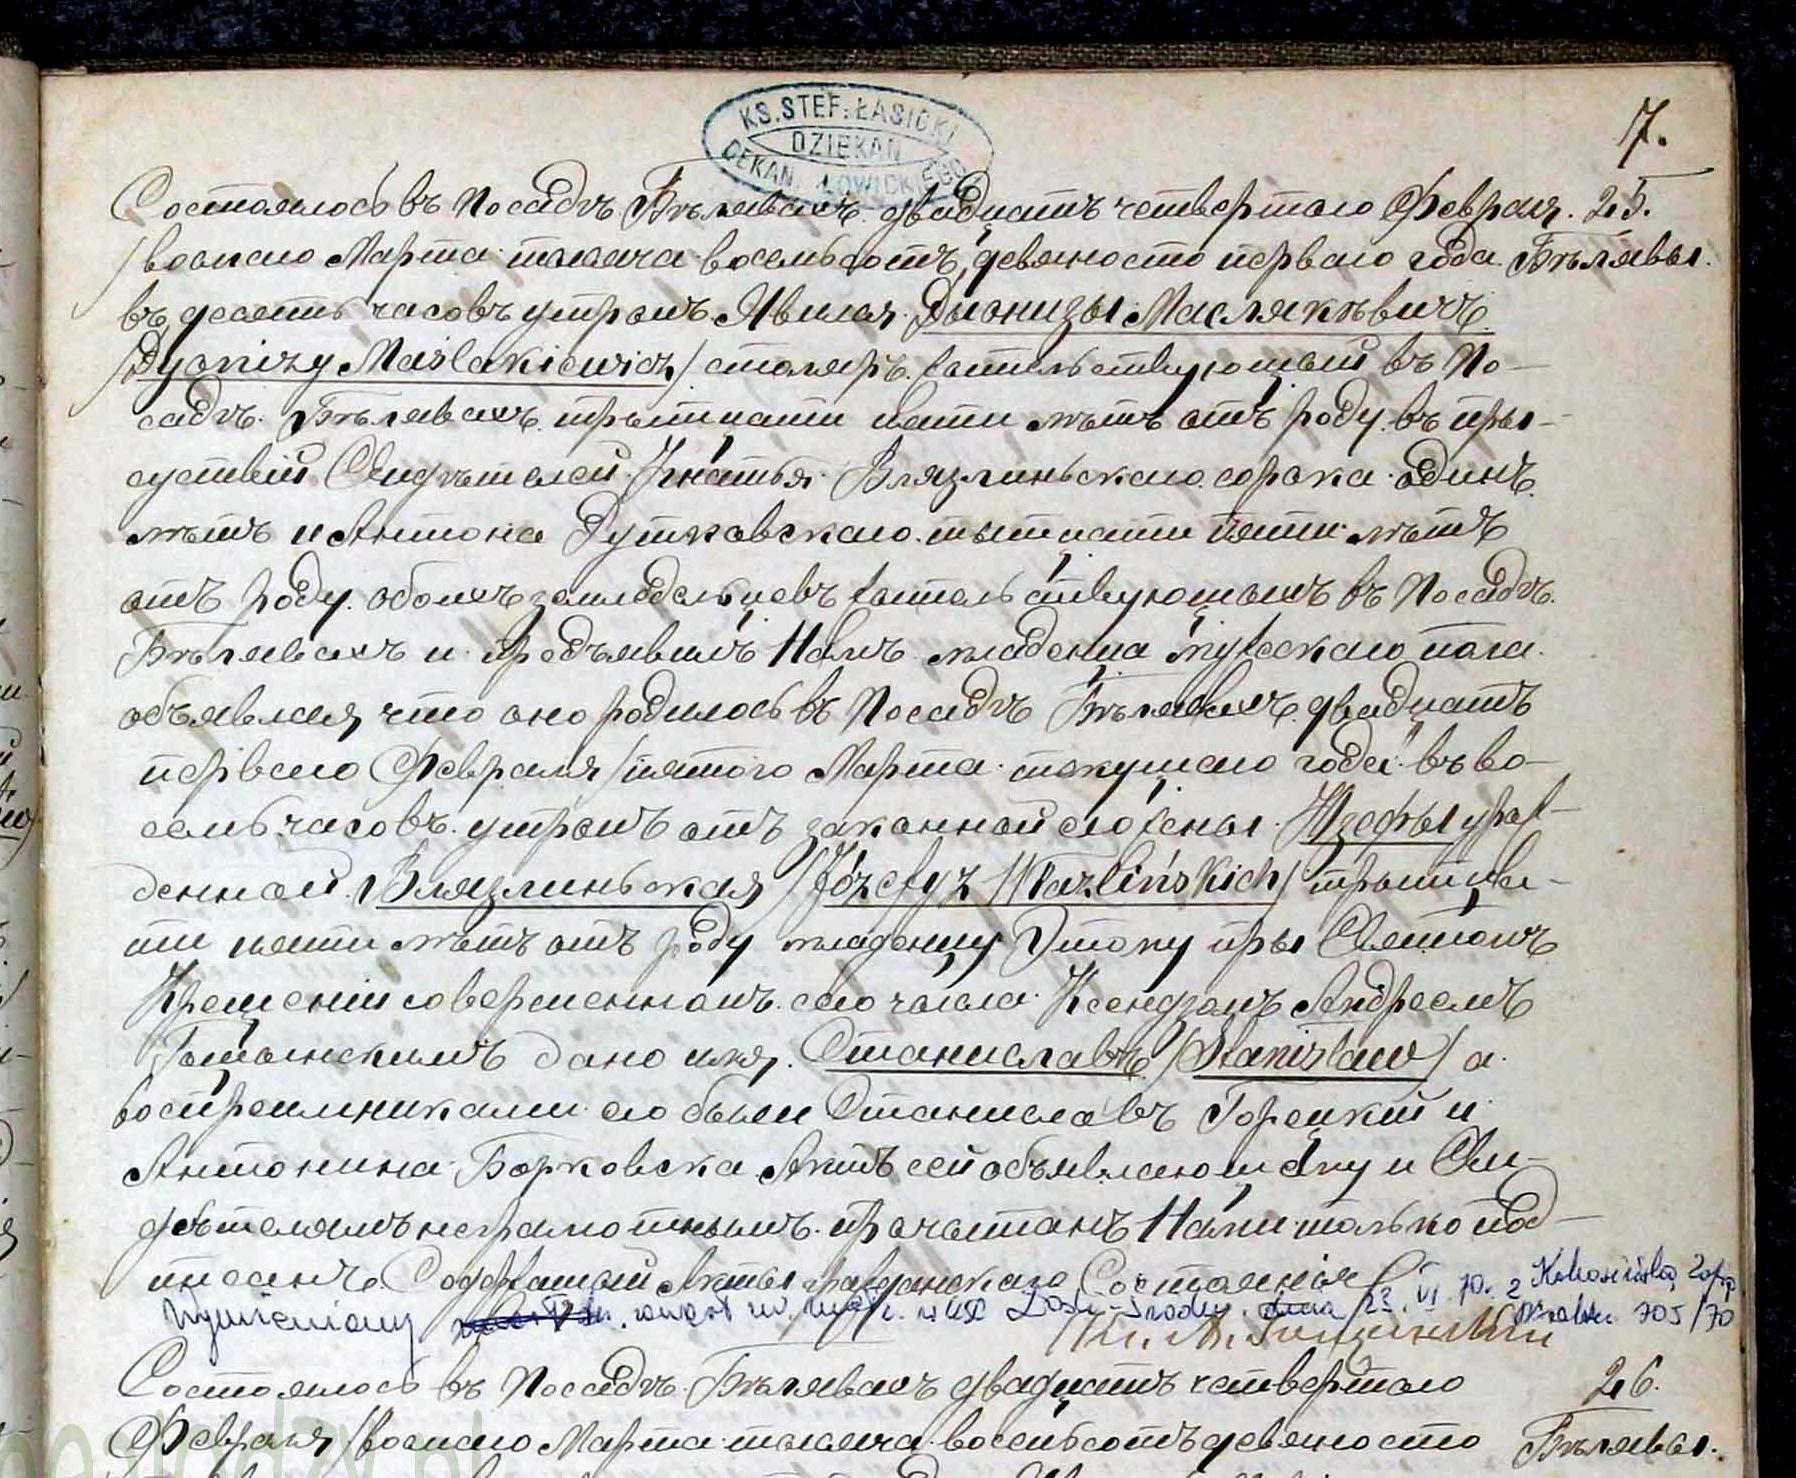 KS. STEF. ŁASICKI
DZIEKAN
DEKAN. ŁOWICKIEGO
7.
Состоялось въ Посадѣ Бѣлявахъ двадцать четвертаго Февраля 25.
/восмаго Марта тысяча восемьсотъ девяносто перваго года Бѣлявы.
въ десять часовъ утромъ. Явился Дыонизы Маслякѣвичъ
/Dyonizy Maślakiewicz/ столяръ жительствующый въ По-
садѣ Бѣлявахъ трытцати пяти лѣтъ отъ роду въ пры-
суствіи Свидѣтелей Игнатья Влязлиньскаго сорока одинъ
лѣтъ и Антона Дутковскаго тытцати пяти лѣтъ
отъ роду обоихъ земледельцевъ жительствующыхъ въ Посадѣ
Бѣлявахъ и предъявилъ Намъ младенца мужескаго пола
объявляя что оно родилось въ Посадѣ Бѣлявахъ двадцать
перваго Февраля /пятого Марта текущаго года въ во-
семь часовъ утромъ отъ законной его жены Юзефы урож-
денной Влязлиньская /Józefy z Wlazlińskich/ трытца-
ти пяти лѣтъ отъ роду младенцу Этому пры Святомъ
Крещеніи совершенномъ сего числа Ксендзомъ Андреемъ
дано имя Станиславъ /Stanisław/ а
воспреимниками его были Станиславъ Горецкій и
Антонина Борковска Актъ сей объявляющему и Сви-
дѣтелямъ неграмотнымъ прочытанъ Нами только под-
писанъ. Содержащій Акты гражданскаго Состоянія
Wymieniony zawarł zw. małż. w USC Łódź-Środm. dnia 23.VI.70. z
705/70
Состоялось въ Посадѣ Бѣлявахъ двадцать четвертаго 26.
Февраля /восмаго Марта тысяча восемьсотъ девяносто Бѣлявы.